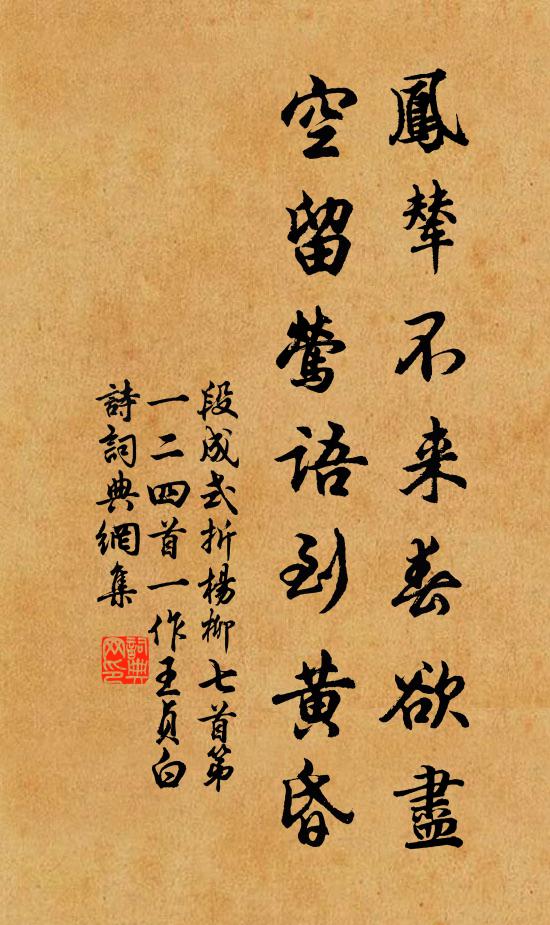 鳳輦不来春欲盡
空留鶯語到黃昏
段成式折楊柳七首第
一二四首一作王貞白
詩詞典網集
詞典
网印